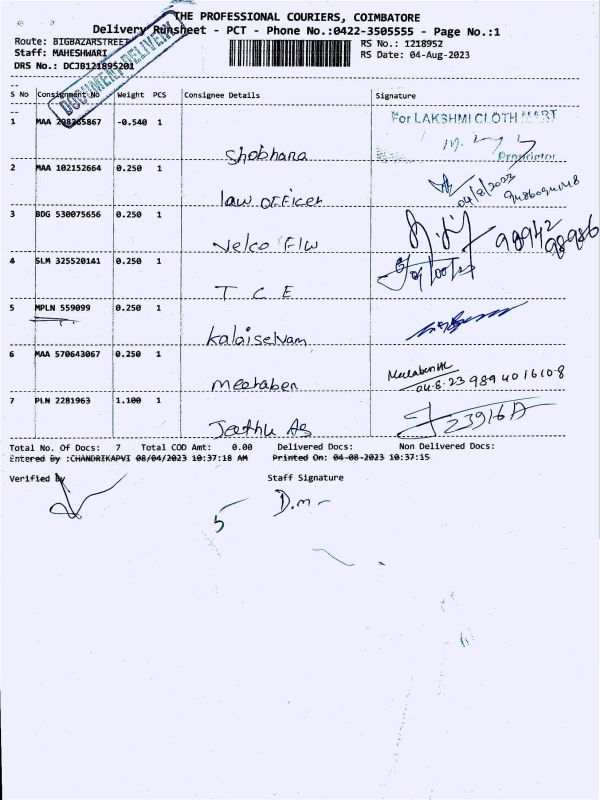 THE PROFESSIONAL COURIERS, COIMBATORE
Delivery Runsheet - PCT - Phone No.:0422-3505555 - Page No.:1
Route: BIGBAZARSTREET
RS No.: 1218952
Staff: MAHESHWARI
RS Date: 04-Aug-2023
DRS No.: DCJB121895201
DOCUMENT DELIVERY
S No Consignment No Weight PCS Consignee Details Signature
1 MAA -0.540 1
For LAKSHMI CLOTH MART
Proprietor
Shobhana
2 MAA 102152664 0.250 1
04/8/2023
law officer
3 BDG 530075656 0.250 1
Velco F/w
98942
98986
4 SLM 325520141 0.250 1
T C E
5 MPLN 559099 0.250 1
Kalaiselvam
6 MAA 570643067 0.250 1
meetaben
04-8-23 9894016108
7 PLN 2281963 1.100 1
23916A
Total No. Of Docs: 7 Total COD Amt: 0.00 Delivered Docs: Non Delivered Docs:
Entered By :CHANDRIKAPVI 08/04/2023 10:37:18 AM Printed On: 04-08-2023 10:37:15
Verified By Staff Signature
D.m
5